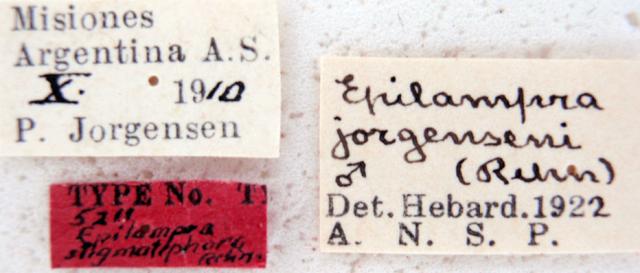 Misiones
Argentina A.S.
X. 1910
P. Jorgensen
TYPE No.
5211
Epilampra
stigmatiphora
Rehn.
Epilampra
jorgenseni
♂ (Rehn)
Det. Hebard. 1922
A. N. S. P.